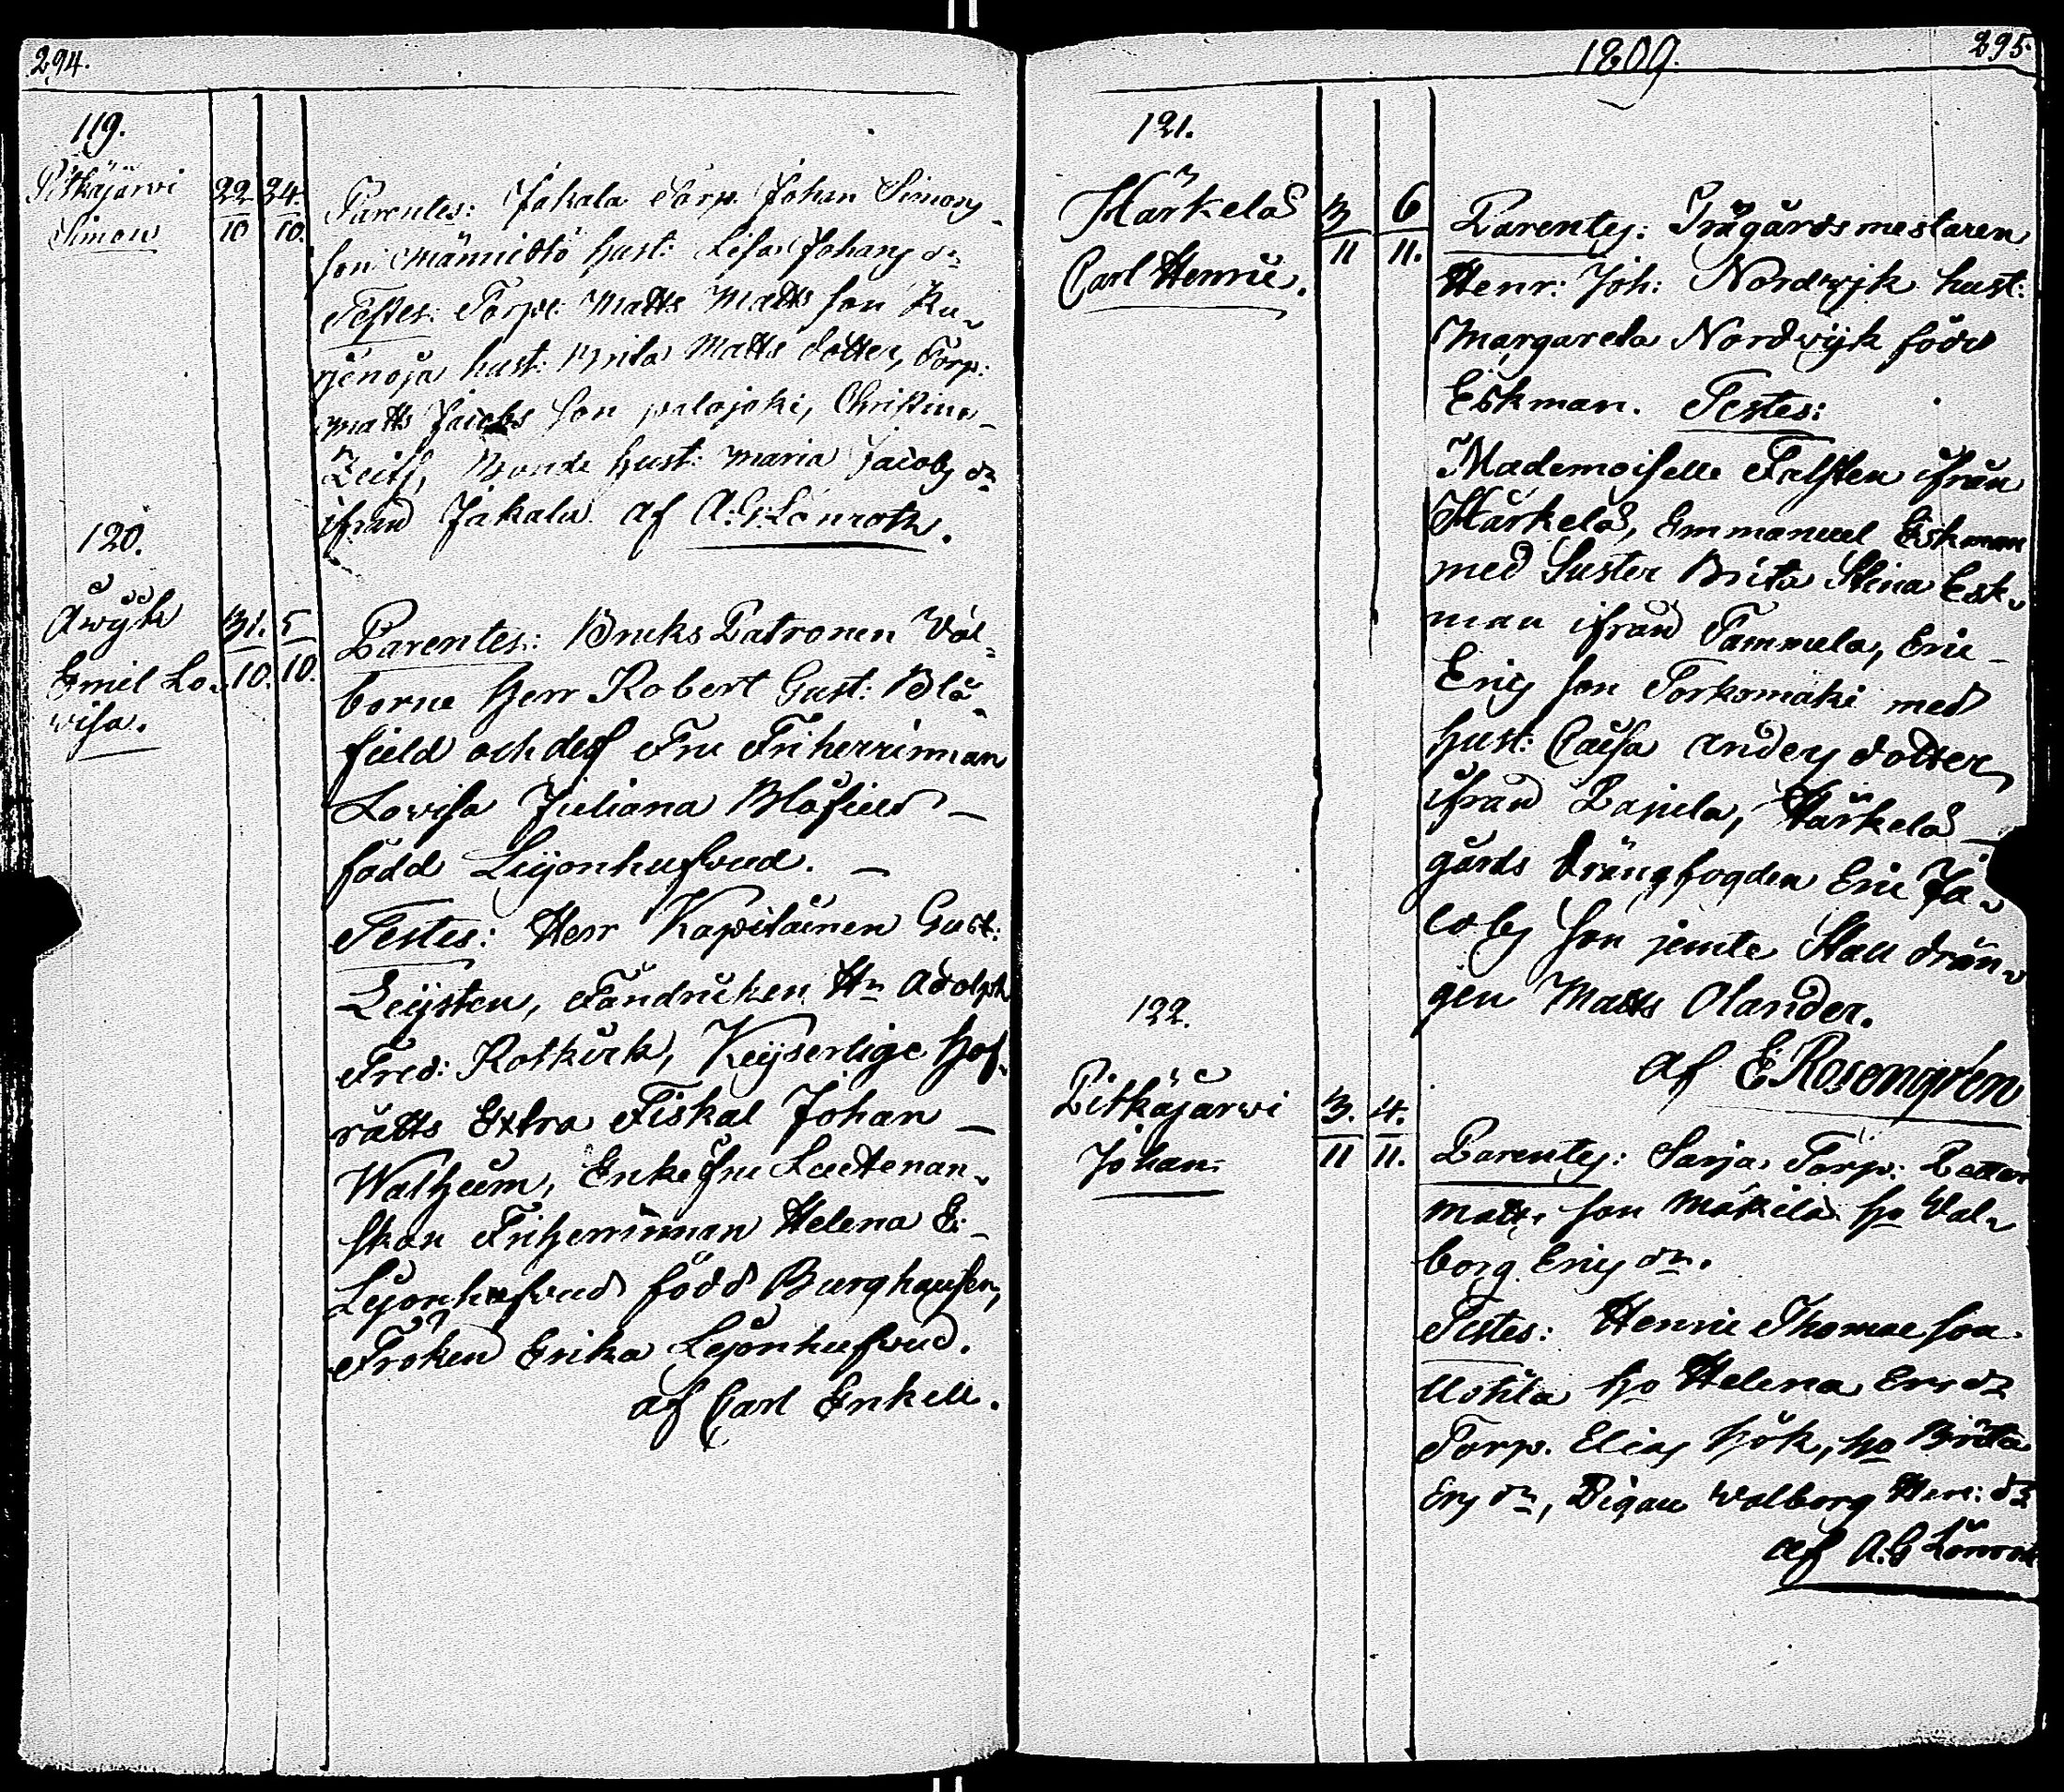 294.
119.
Pitkäjärwi
Simon
22/10 24./10.
Parentes: Jakala Torp. Johan Simons
son Männistö hust: Lisa Johans dr
Testes: Torpr: Matts Matts son Ku-
rjenoja hust: Brita Matts dotter, Torp:
Matts Jacobs son palojoki, Christina
Zeits, Bonde hust: Maria Jacobs dr
ifrån Jakala. af A:G:Lönroth.
120.
Åwijk
Emil Lo-
wisa.
31./10. 5/10.
Parentes: Bruks Patronen Väl-
borne Herr Robert Gust: Blå-
field och dess Fru Friherrinnan
Lovisa Juliana Blåfield –
född Leijonhufwud. –
Testes: Herr Kapitainen Gust:
Leijsten, Fändricken Hr Adolph
Fred: Rotkirk, Keijserlige Hof-
rätts Extra Fiskal Johan –
Walheim, Enkefru Lieutenan-
skan Friherrinnan Helena E: –
Lejonhufwud född Burghausen,
Fröken Erika Lejonhufwud.
af Carl Enkell.
1809. 295.
121.
Härkelä
Carl Henric.
3/11 6/11.
Parentes: Trägårdsmestaren
Henr: Joh: Nordwijk hust:
Margareta Nordwijk född
Eskman. Testes:
Mademoiselle Falsten ifrån
Härkelä, Emmanuel Eskman
med Suster Brita Stina Esk-
man ifrån Tammela, Eric
Erics son Torkomäki med
hust: Caisa Anders dotter
ifrån Pajula, Härkelä –
gårds drängfogden Eric Ja-
cobs son jemte Stall drän-
gen Matts Olander.
af E Rosengrén
122.
Pitkäjärwi
Johan
3./11 4./11.
Parentes: Sarja Torp:
Matts son Mäkilä ho Val-
borg Erics dr.
Testes: Henric Thomae son
Uotila ho Helena Ers dr
Torp. Elias Hök, ho Brita
Ers dr, Pigan Walborg Henr: dr
af A:G Lönroth